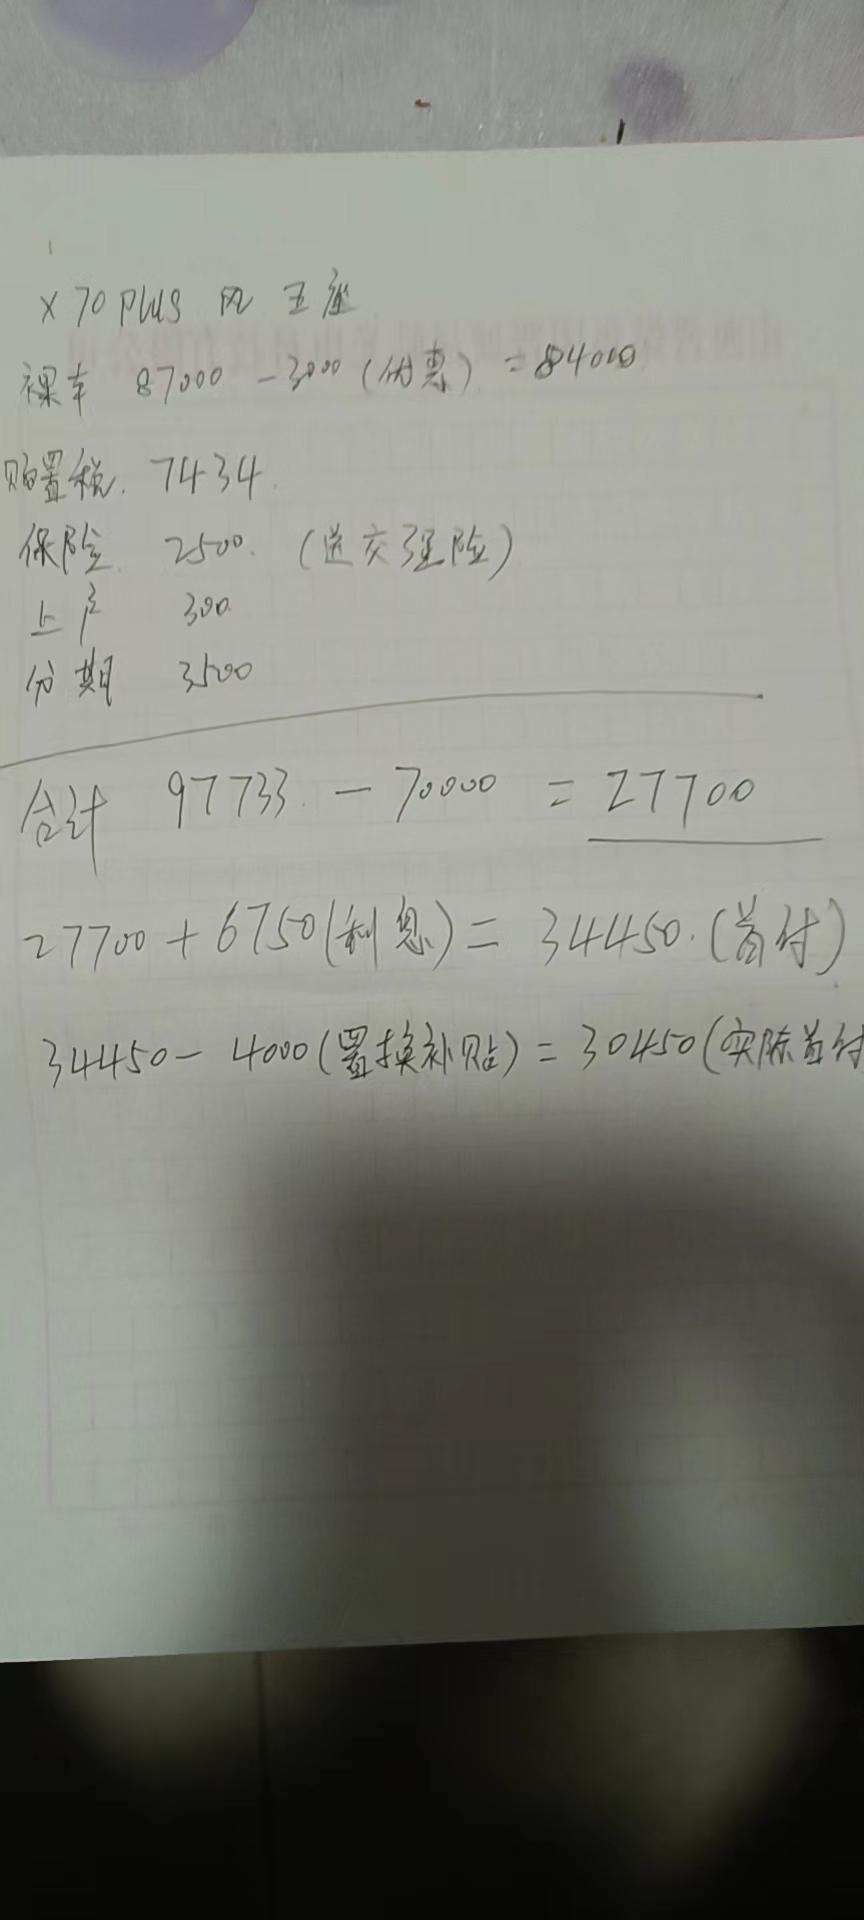 X70 PLUS 风 五座
裸车 87000 - 3000 (优惠) = 84000
购置税. 7434.
保险 2500. (送交强险)
上户 300.
分期 3500
合计 97733. - 70000 = 27700
27700 + 6750(利息) = 34450.(首付)
34450 - 4000(置换补贴) = 30450(实际首付